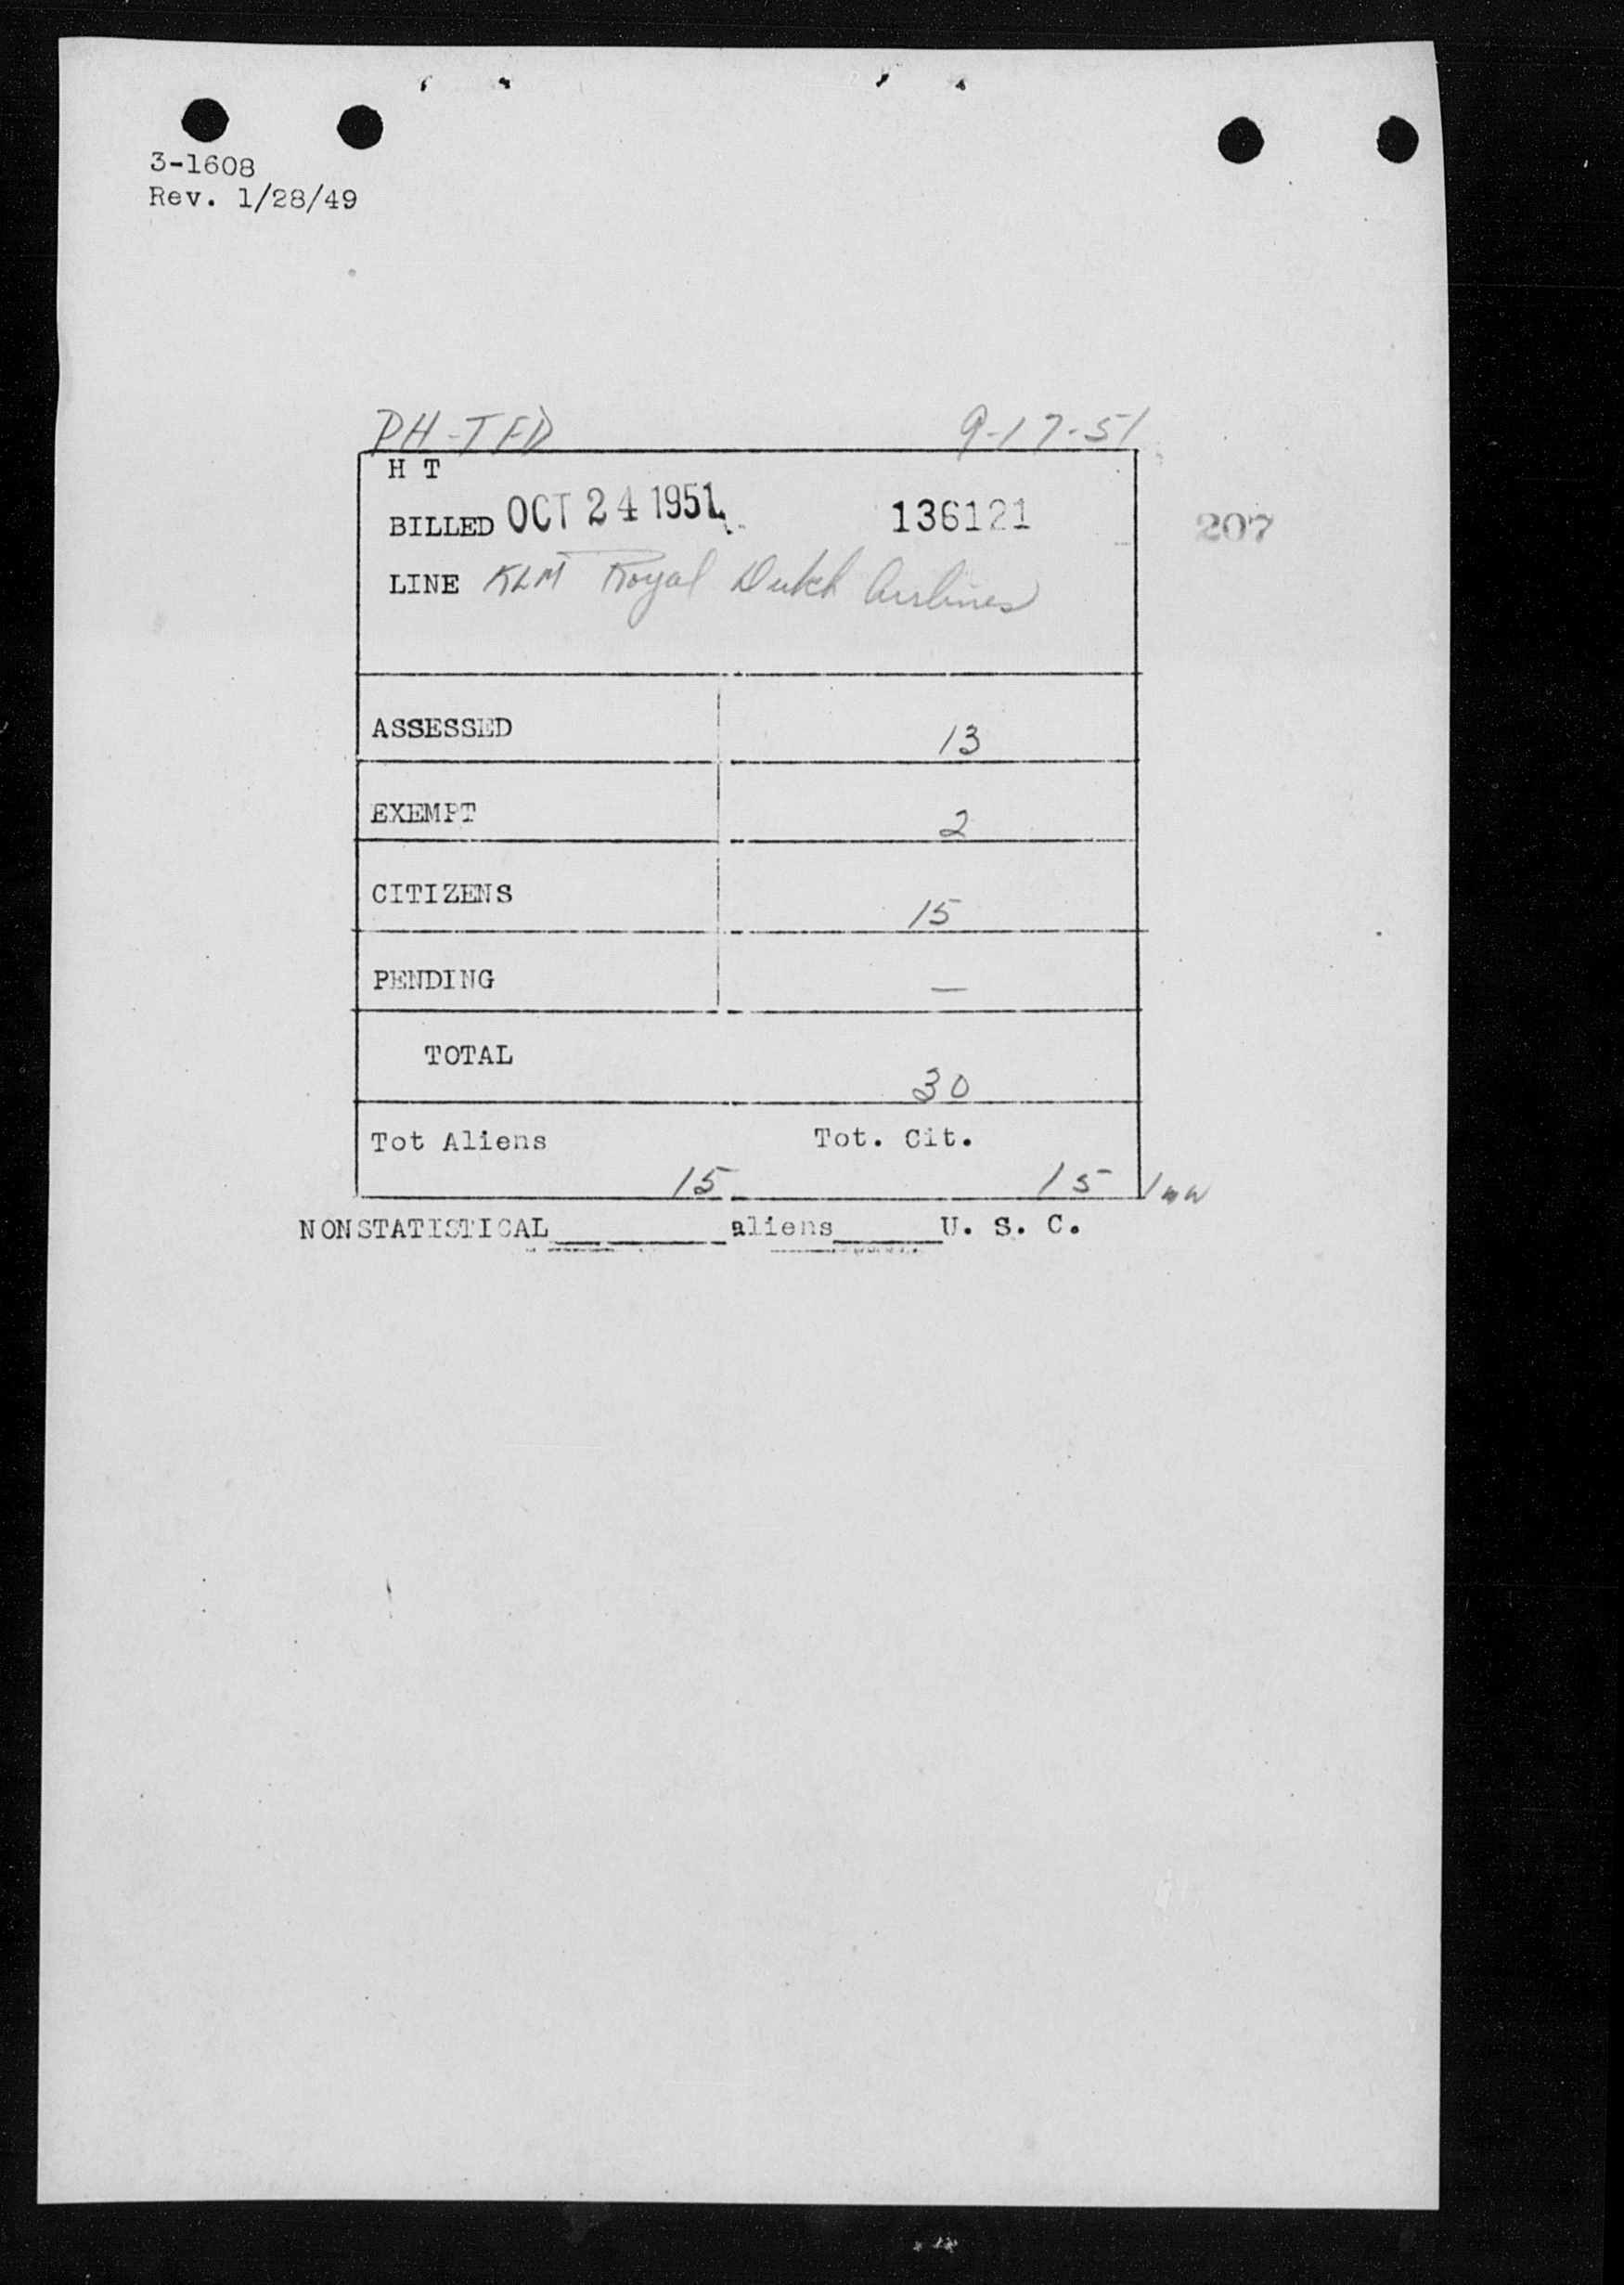 3-1608
Rev. 1/28/49
PH-TFD 9-17-51
H T
BILLED OCT 24 1951 136121 207
LINE KLM Royal Dutch Airlines
ASSESSED 13
EXEMPT 2
CITIZENS 15
PENDING —
TOTAL 30
Tot Aliens Tot. Cit.
15 15
NONSTATISTICAL__________aliens______U. S. C.